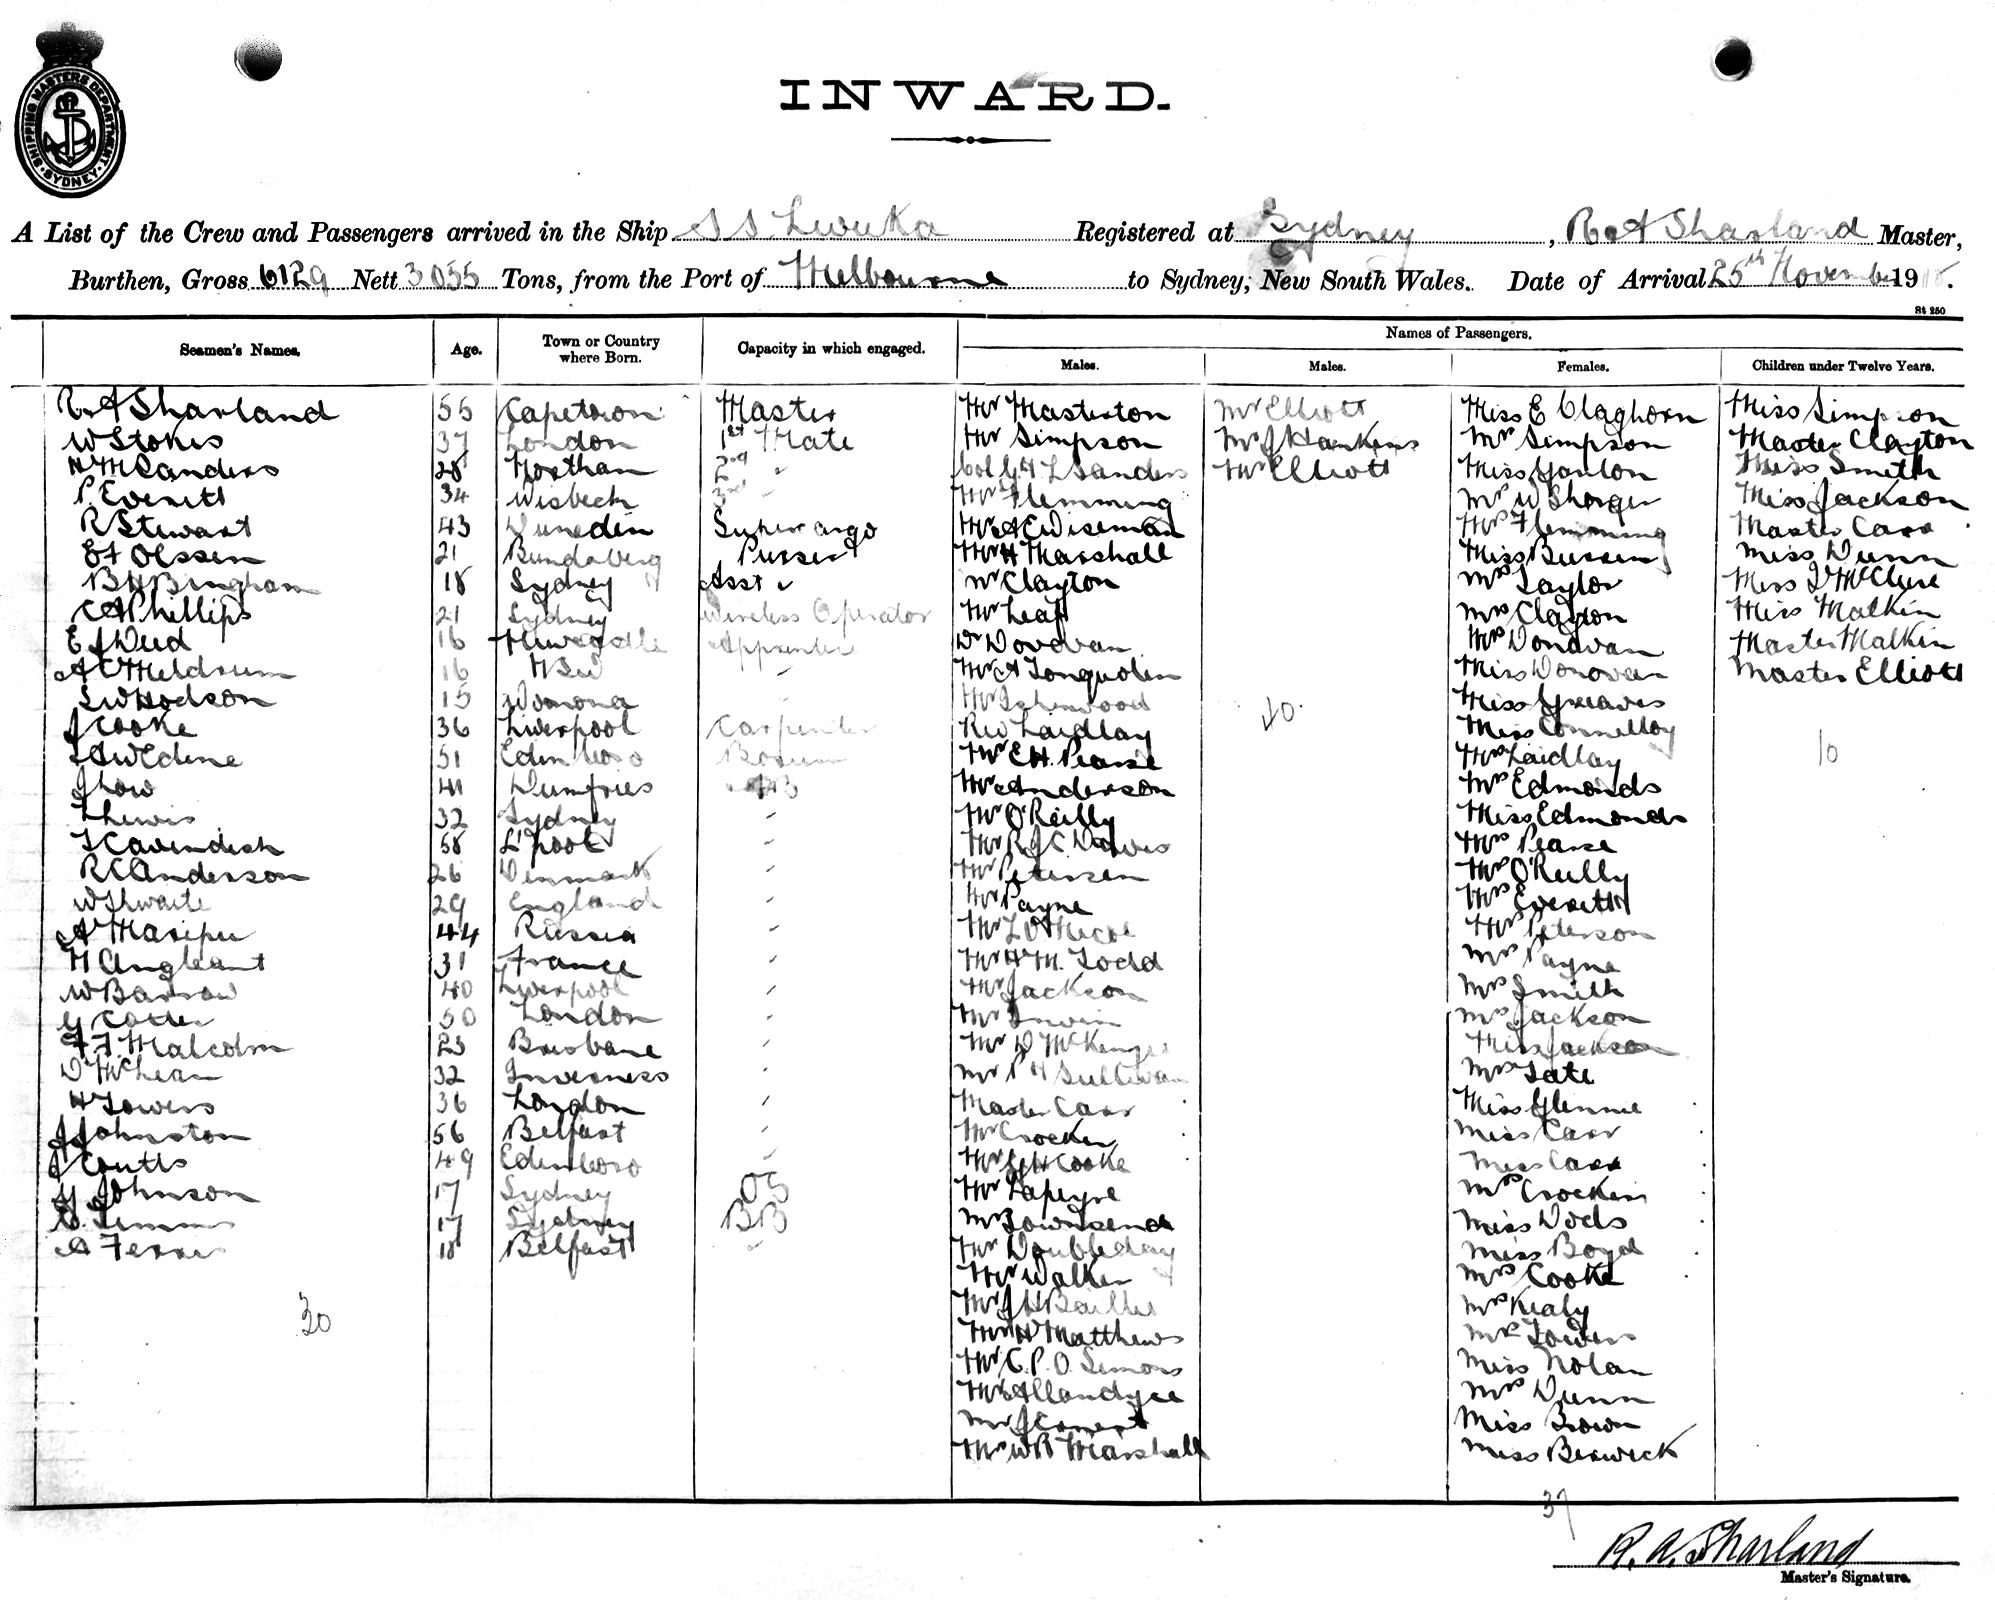 SHIPPING MASTERS DEPARTMENT
SYDNEY
INWARD.
A List of the Crew and Passengers arrived in the Ship S S Levuka Registered at Sydney, R A Sharland Master,
Burthen, Gross 6129 Nett 3055 Tons, from the Port of Melbourne to Sydney, New South Wales. Date of Arrival 25th November 19
St 250
Seamen's Names. Age. Town or Country where Born. Capacity in which engaged. Names of Passengers.
Males. Males. Females. Children under Twelve Years.
R A Sharland 55 Capetown Master Mr Masterton Mr Elliott Miss E Claghorn Miss Simpson
W Stokes 37 London 1st Mate Mr Simpson Mr J Hankins Mrs Simpson Master Clayton
H M Sanders 28 Northam 2nd " Col G H L Sanders Mr Elliott Miss Yanlon Miss Smith
P Everitt 34 Wisbech 3rd " Mr Flemming Mrs W Sharger Miss Jackson
R Stewart 43 Dunedin Supercargo Mr A E Wiseman Mrs Flemming Master Carr
E F Olssen 21 Bundaberg Purser Mr H Marshall Miss Miss Dunn
B H Bingham 18 Sydney Asst " Mr Clayton Mrs Taylor Miss D McClure
C A Phillips 21 Sydney Wireless Operator Mr Leaf Mrs Clayton Miss Malkin
E J Deed 16 Newcastle Apprentice Dr Donovan Mrs Donovan Master Malkin
A C Meldrum 16 N S W " Mr A Miss Donovan Master Elliott
S W Hodson 15 " Mr Miss Greaves
J Cooke 36 Liverpool Carpenter Rev Laidlay Miss Connelley
51 Edinboro Bosun Mr E H. Pearse Mrs Laidlay
J Low 41 Dumfries AB Mr Anderson Mrs Edmonds
T Lewis 32 Sydney " Mr O'Reilly Miss Edmonds
T Cavendish 58 L'pool " Mr R J C Davies Mrs Pearse
R C Anderson 26 Denmark " Mr Petersen Mrs O'Reilly
W Thwaite 29 England " Mr Payne Mrs Everitt
44 Russia " Mr Mrs Peterson
H Angleant 31 France " Mr H M. Todd Mrs Payne
W Barrow 40 Liverpool " Mr Jackson Mrs Smith
G Cotter 50 London " Mr Irwin Mrs Jackson
F F Malcolm 23 Brisbane " Mr D McKenzie Miss Jackson
D McLean 32 Inverness " Mr P H Sullivan Mrs Tate
H Towers 36 London " Master Carr Miss Glennie
J Johnston 56 Belfast " Mr Crocker Miss Carr
J Coutts 49 Edinboro " Mr G H Cooke Miss Carr
G Johnson 17 Sydney OS Mr Lapeyre Mrs Crocker
17 Sydney BB Mr Townsend Miss Dods
A 18 Belfast " Mr Doubleday Miss Boyd
Mr Walker Mrs Cooke
Mr J H Baillie Mrs Kealy
Mr H Matthews Mrs Towers
Mr C. P. O. Simons Miss Nolan
Mr Allandyce Mrs Dunn
Mr J Ernest Miss Brown
Mr W R Marshall Miss Berwick
30 40 37 10
R. A. Sharland
Master's Signature.